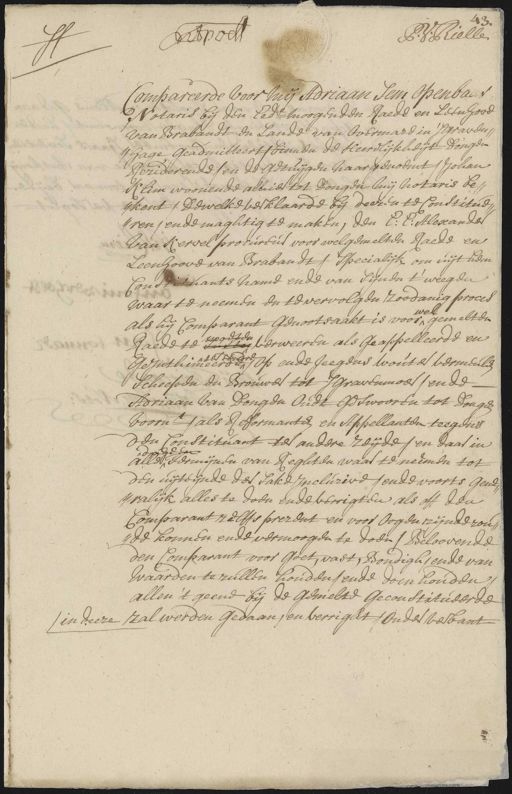 43.
Compareerde voor mij Adriaan Jem openba
Notaris bij den Ed: mogenden Raede en Leenhove
van Brabandt en Lande van overmaze in 'sGraven
hage Geadmitteert binnen de Heerlijkheijt Dongen
Resideerende en de getuijgen naargenomt Johan
woonende alhier tot Dongen mij Notaris be
kent Dewelke verklaarde bij deezen te Constitue
ren ende maghtig te maken, den E: Alexander
van Kervel procureur voor welgemelten Raede en
Leenhove van Brabandt Specialijk om uijt sijn
Constituants name ende van sijnent weegen
waar te neemen en te vervolgen zoodanig proces
als hij Comparant genootsaakt is voor wel gemelten
Raede te verweeren als Geappelleerde en
Op ende jeegens
Scheepen en Brouwer tot 's Gravenmoer ende
Adriaan van Dongen Oudt Geswooren tot Dongen
voorn:t als Impetranten en Appellanten teegens
den Constituant ter andere zeijde en daar in
alle termijnen van Reghten waar te neemen tot
den uijteijnde der sake incluzive ende voorts gene
ralijk alles te doen ende verrigten als off den
Comparant zelfs prezent en voor oogen zijnde zou
de konnen ende vermoogen te doen Beloovende
den Comparant voor Goet, vast, Bondigh ende van
waarden te zullen houden ende doen houden
allen 't geene bij de gemelte Geconstitueerde
in deeze zal werden Gedaan en verrigt Onder verbant